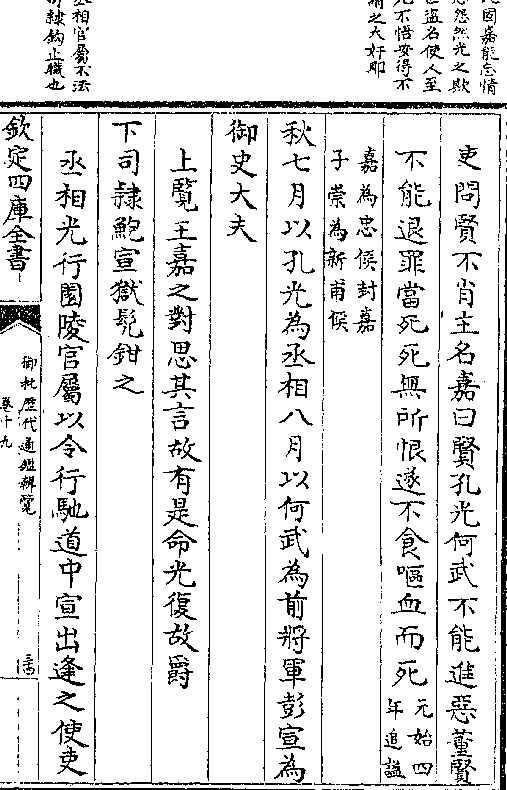 見因嘉能忘情
怨怨然光之欺
世盗名使人至
死不悟安得不
謂之大奸耶
丞相官屬不法
司隸鈎止職也
吏問賢不肖主名嘉曰賢孔光何武不能進惡董賢
不能退罪當死死無所恨遂不食嘔血而死元始四
年追諡
嘉為忠侯封嘉
子崇為新甫侯
秋七月以孔光為丞相八月以何武為前將軍彭宣為
御史大夫
上覽王嘉之對思其言故有是命光復故爵
下司隸鮑宣獄髠鉗之
丞相光行園陵官屬以令行馳道中宣出逢之使吏
欽定四庫全書
御批歷代通鑑輯覽
卷十九